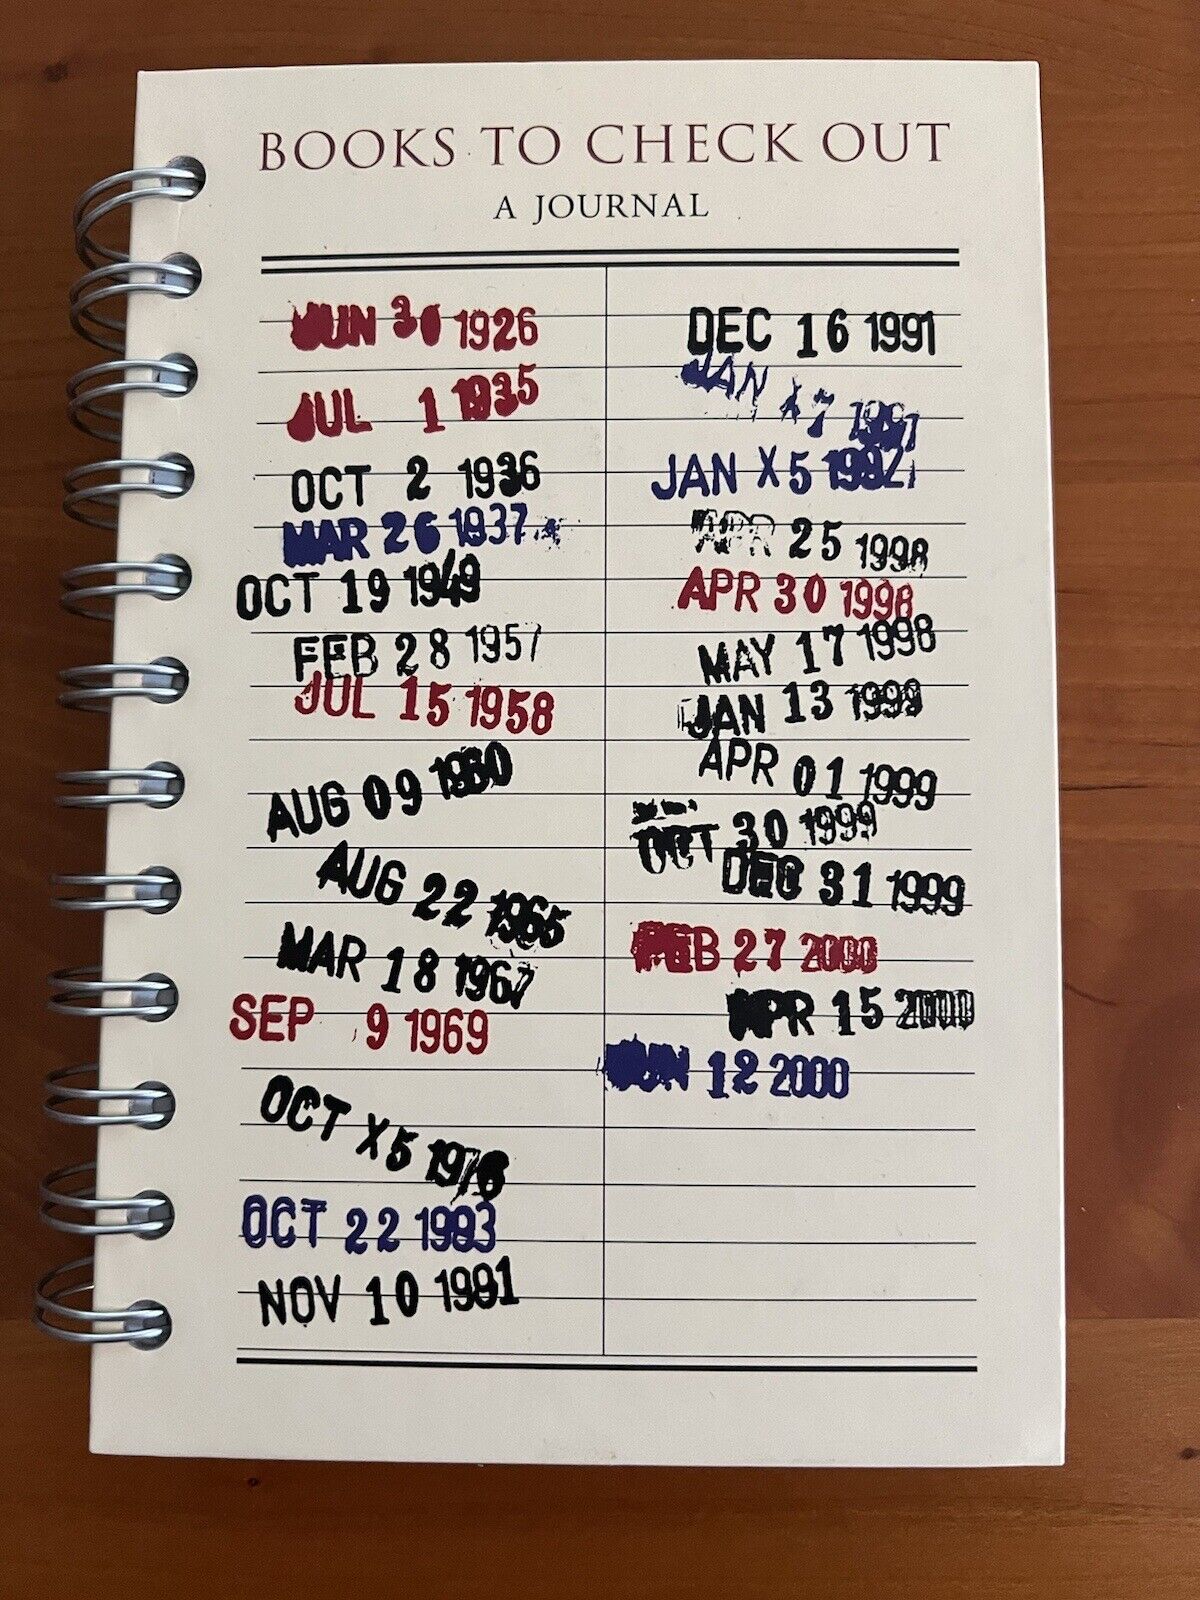 BOOKS TO CHECK OUT
A JOURNAL
JUN 30 1926
JUL 1 1935
OCT 2 1936
MAR 26 1937
OCT 19 1949
FEB 28 1957
JUL 15 1958
AUG 09 1960
AUG 22 1965
MAR 18 1967
SEP 9 1969
OCT X5 1976
OCT 22 1983
NOV 10 1991
DEC 16 1991
JAN X7
JAN X5 1992
APR 25 1998
APR 30 1998
MAY 17 1998
JAN 13 1999
APR 01 1999
OCT 30 1999
DEC 31 1999
FEB 27 2000
APR 15 2000
JUN 12 2000